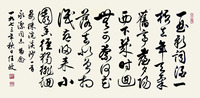 一曲新詞酒一
杯去年天氣
舊亭臺夕陽
西下幾時回
無可奈何花
落去似曾相
識燕歸來小
園香徑獨徘徊
晏殊浣溪沙一首
同志
一九七三年秋任政